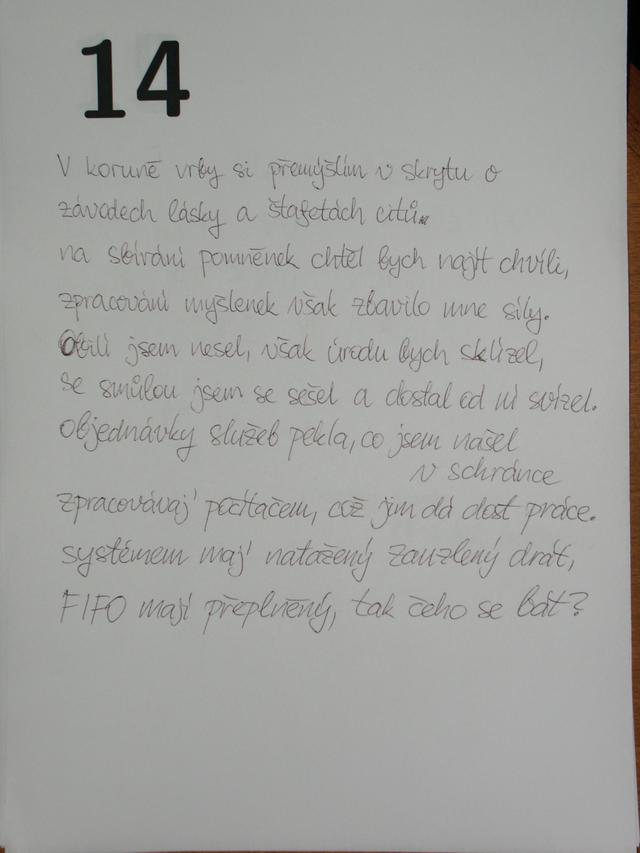 14
V koruně vrby si přemýšlím v skrytu o
závodech lásky a štafetách citů.
na sbírání pomněnek chtěl bych najít chvíli,
zpracování myšlenek však zbavilo mne síly.
Obilí jsem nesel, však úrodu bych sklízel,
se smůlou jsem se sešel a dostal od ní svízel.
Objednávky služeb pekla, co jsem našel
v schránce
zpracovávaj' počítačem, což jim dá dost práce.
systémem maj' natažený zauzlený drát,
FIFO mají přeplněný, tak čeho se bát?